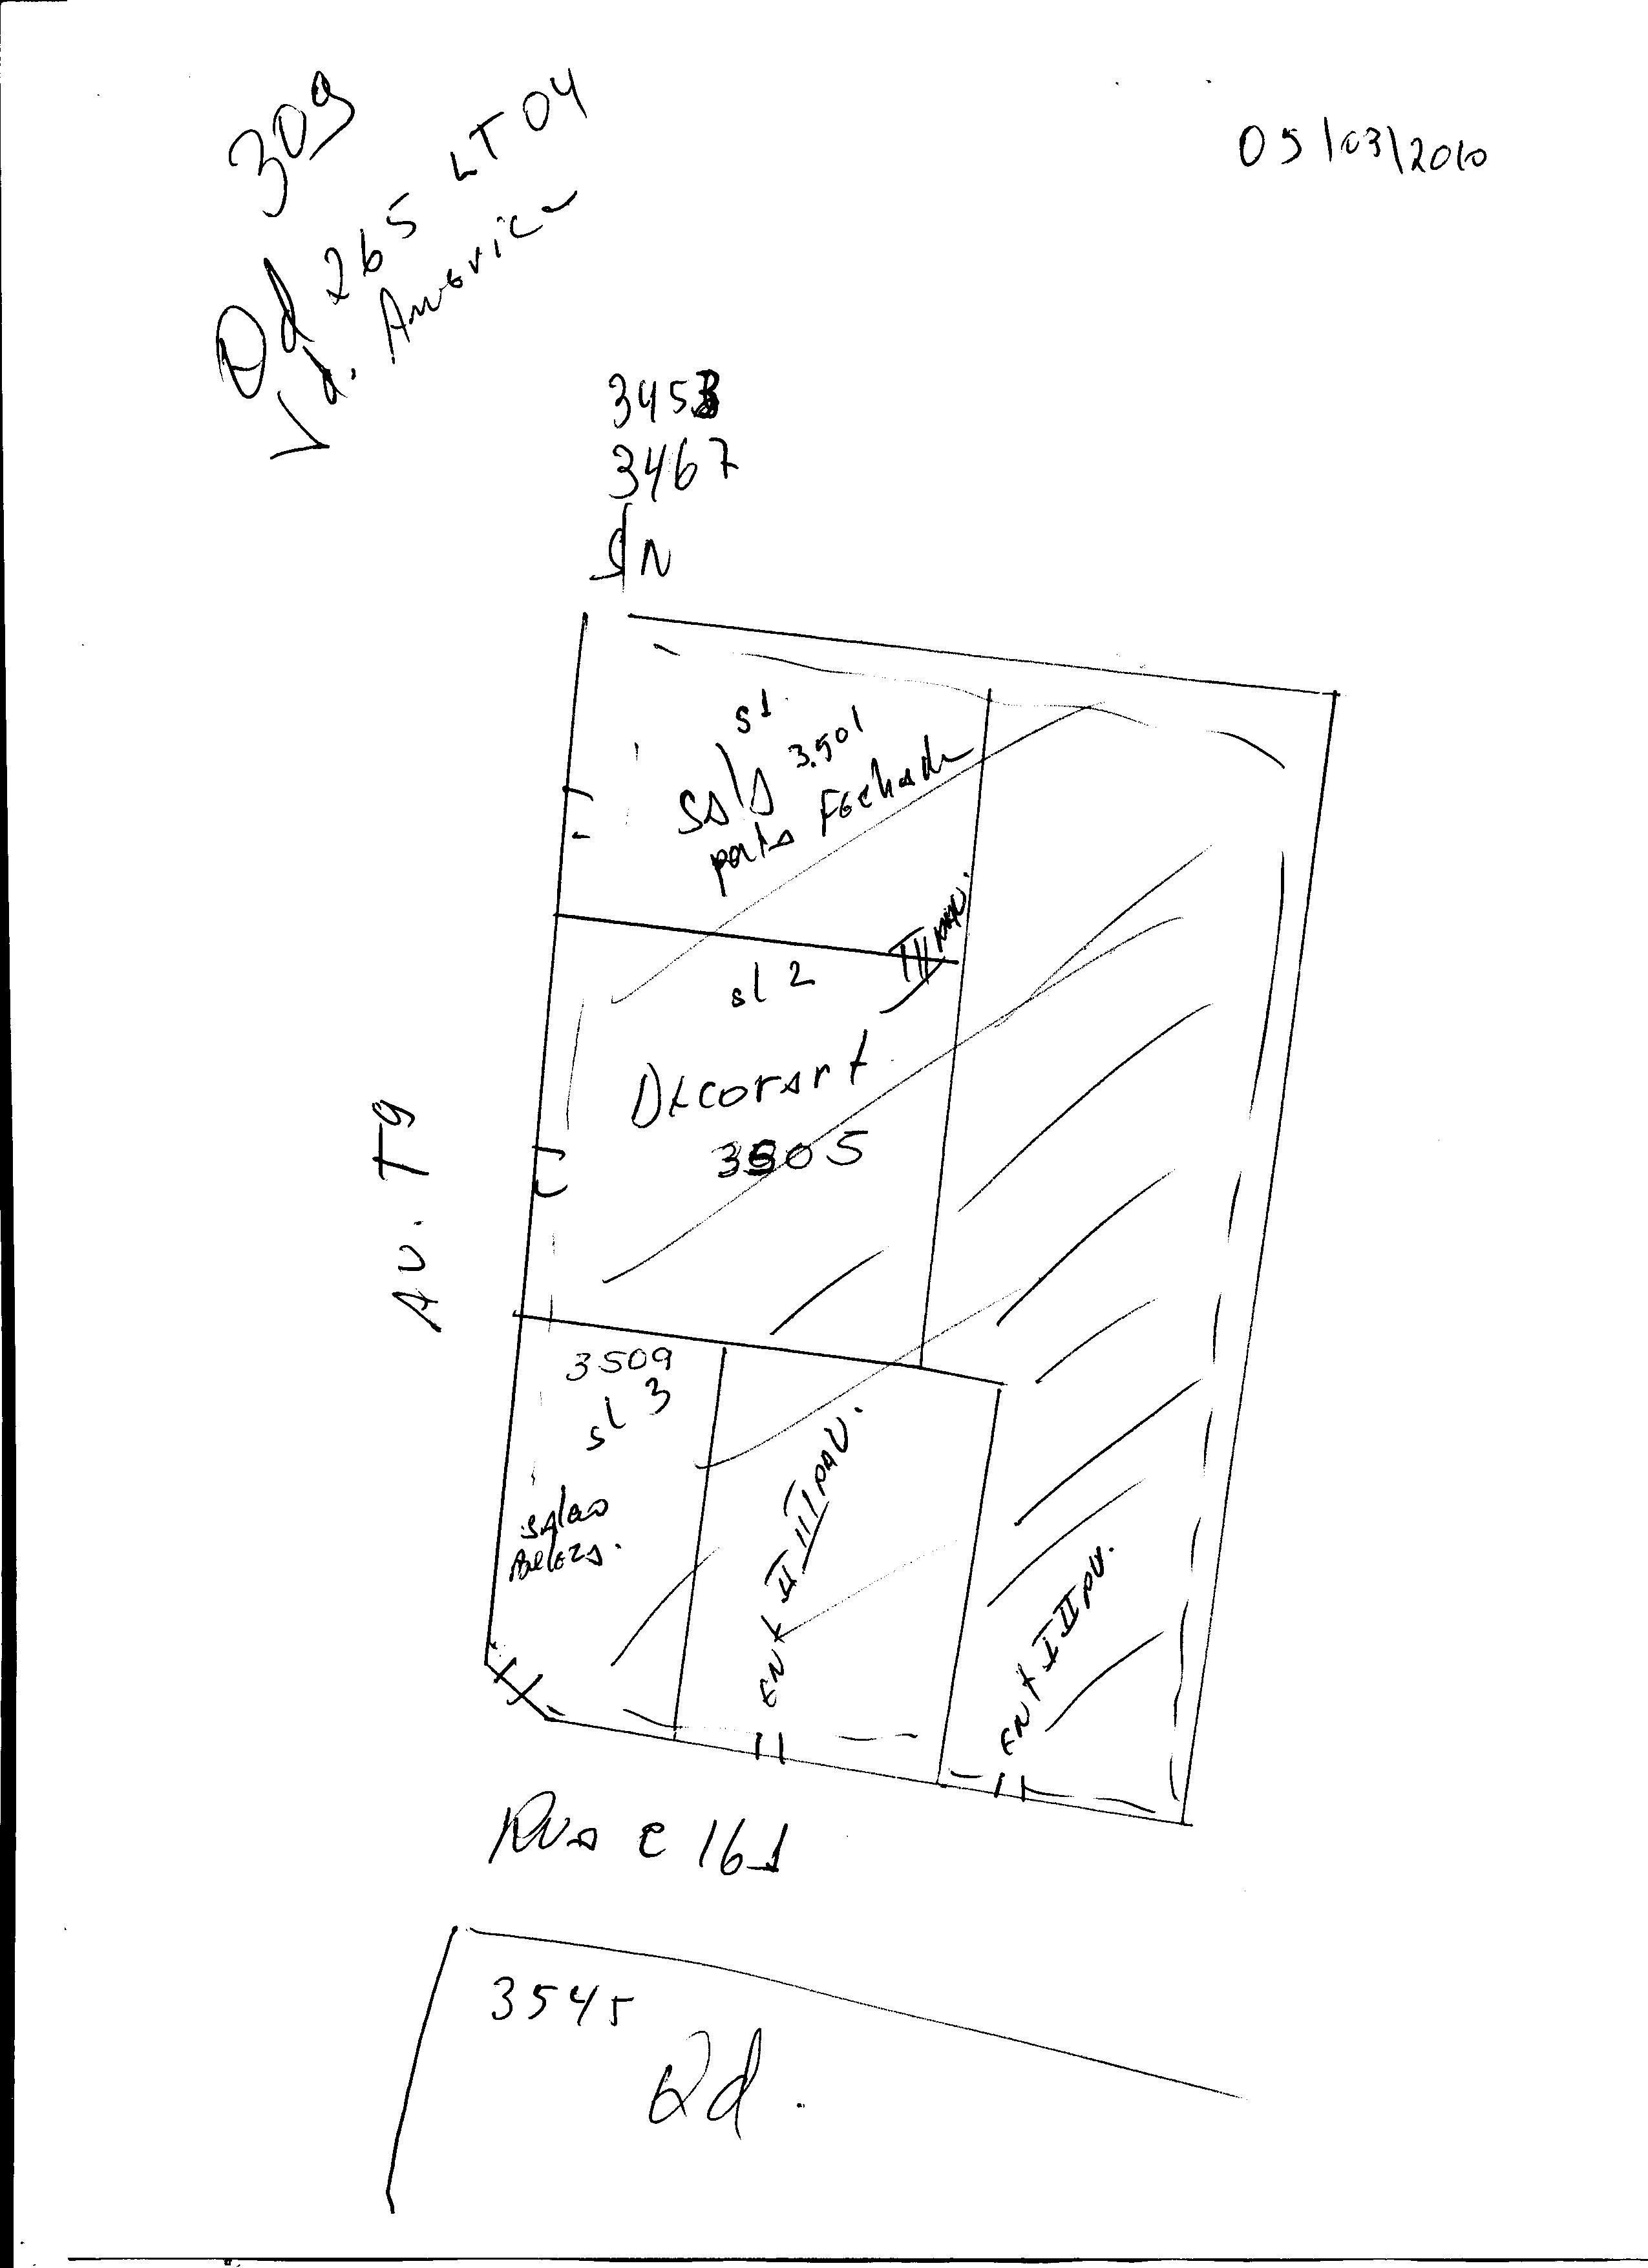 309
Qd 265 LT 04
Jd. America
05/03/2010
3453
3467
S/N
s1
Sala 3.501
porta Fechada
III PAV.
sl 2
Decorart
3505
AV. T9
3509
sl 3
salao
Beleza.
Ent II III PAV.
Ent I II PAV.
Rua C 161
3545
Qd.